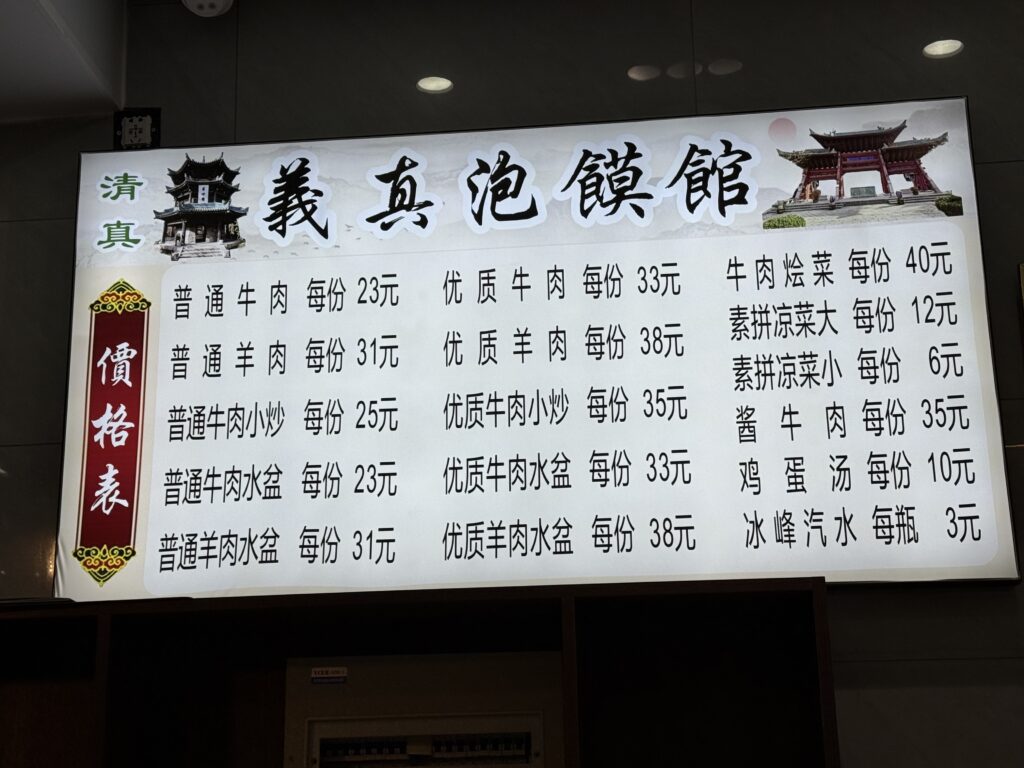 清真
義真泡饃館
價格表
普通牛肉 每份 23元
普通羊肉 每份 31元
普通牛肉小炒 每份 25元
普通牛肉水盆 每份 23元
普通羊肉水盆 每份 31元
优质牛肉 每份 33元
优质羊肉 每份 38元
优质牛肉小炒 每份 35元
优质牛肉水盆 每份 33元
优质羊肉水盆 每份 38元
牛肉烩菜 每份 40元
素拼凉菜大 每份 12元
素拼凉菜小 每份 6元
酱牛肉 每份 35元
鸡蛋汤 每份 10元
冰峰汽水 每瓶 3元